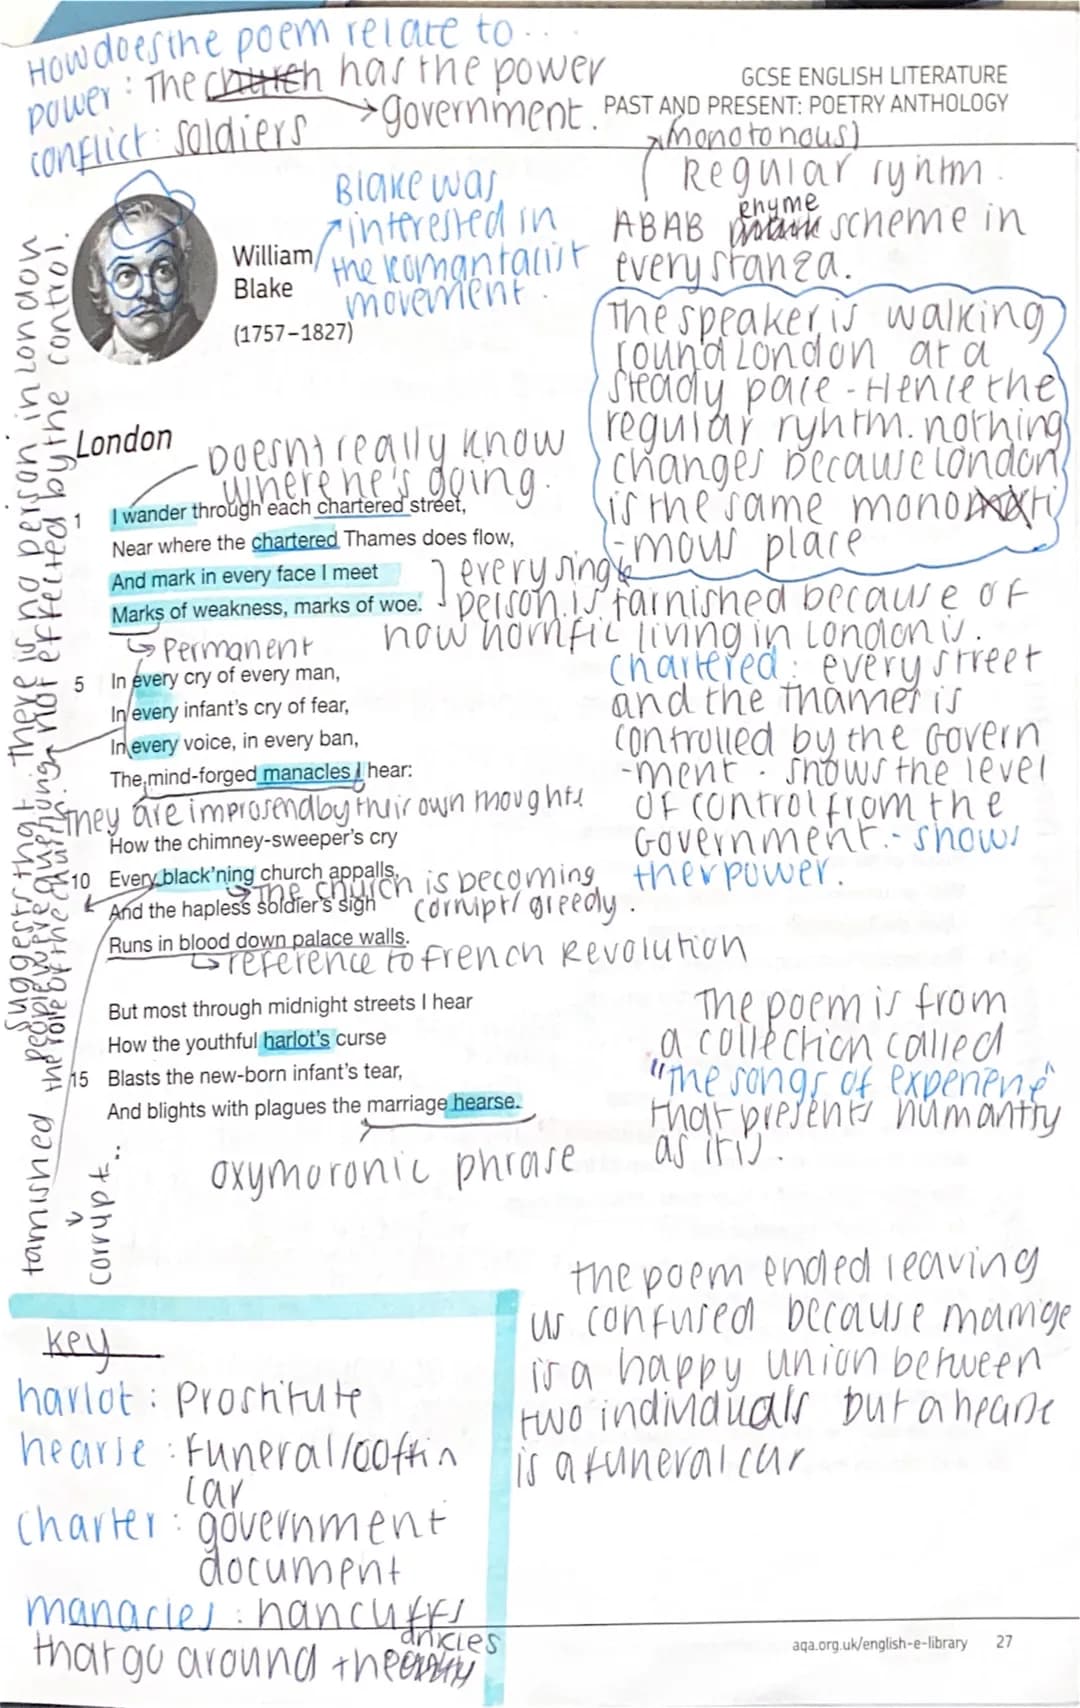 How does the poem relate to...
power : The church has the power
→ government.
conflict : soldiers
GCSE ENGLISH LITERATURE
PAST AND PRESENT: POETRY ANTHOLOGY
(monotonous)
Regular ryhtm.
ABAB rhyme scheme in
every stanza.
Blake was
interested in
the romantacist
movement.
William
Blake
(1757–1827)
The speaker is walking
round London at a
steady pace - Hence the
regular ryhtm. nothing
changes because london
is the same mono
-mous place
London
Doesnt really know
where he's going.
1 I wander through each chartered street,
Near where the chartered Thames does flow,
And mark in every face I meet
Marks of weakness, marks of woe.
every single
person is tarnished because of
how horrific living in London is.
↳ Permanent
5 In every cry of every man,
In every infant's cry of fear,
In every voice, in every ban,
The mind-forged manacles I hear:
They are by their own thoughts
chartered : every street
and the Thames is
controlled by the Govern
-ment. Shows the level
of control from the
Government. - shows
their power.
How the chimney-sweeper's cry
10 Every black'ning church appalls,
And the hapless soldier's sigh
Runs in blood down palace walls.
→ The church is becoming
corrupt/greedy.
↳ reference to French Revolution
But most through midnight streets I hear
How the youthful harlot's curse
15 Blasts the new-born infant's tear,
And blights with plagues the marriage hearse.
oxymoronic phrase
The poem is from
a collection called
"The songs of
that presents humantiy
as it is.
suggests that there is no person in London
not effected by the control.
tarnished
corrupt...
people were
the role of the church
the poem ended leaving
us confused because marrige
is a happy union between
two individuals but a hearse
is a funeral car
Key
harlot : Prostitute
hearse : Funeral/coffin
car
charter : government
document
manacles : hancuffs
that go around the ankles
aqa.org.uk/english-e-library 27